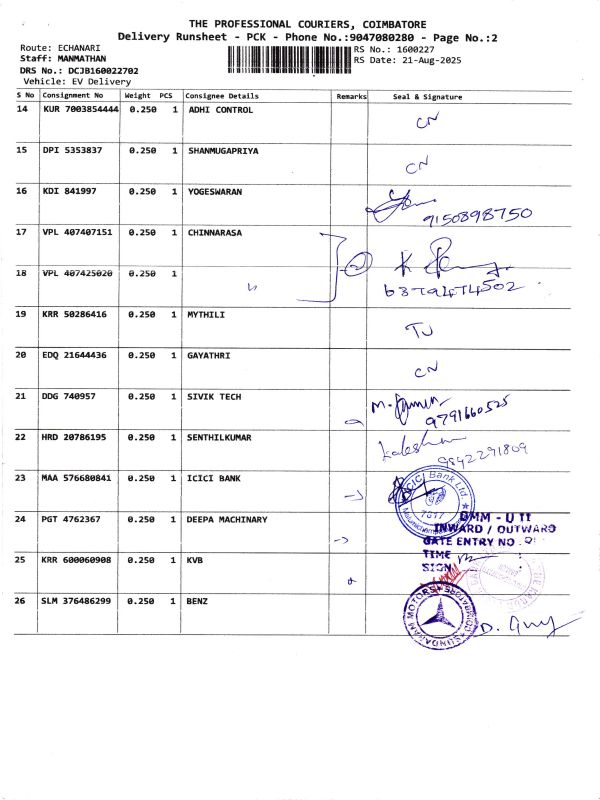 THE PROFESSIONAL COURIERS, COIMBATORE
Delivery Runsheet - PCK - Phone No.:9047080280 - Page No.:2
Route: ECHANARI RS No.: 1600227
Staff: MANMATHAN RS Date: 21-Aug-2025
DRS No.: DCJB160022702
Vehicle: EV Delivery
S No Consignment No Weight PCS Consignee Details Remarks Seal & Signature
14 KUR 7003854444 0.250 1 ADHI CONTROL CN
15 DPI 5353837 0.250 1 SHANMUGAPRIYA CN
16 KDI 841997 0.250 1 YOGESWARAN
9150898750
17 VPL 407407151 0.250 1 CHINNARASA 2
18 VPL 407425020 0.250 1 6379474502
19 KRR 50286416 0.250 1 MYTHILI TJ
20 EDQ 21644436 0.250 1 GAYATHRI CN
21 DDG 740957 0.250 1 SIVIK TECH
9791660525
22 HRD 20786195 0.250 1 SENTHILKUMAR
9842291809
23 MAA 576680841 0.250 1 ICICI BANK
ICICI Bank Ltd.
7617
24 PGT 4762367 0.250 1 DEEPA MACHINARY
GMM - U III
INWARD / OUTWARD
GATE ENTRY NO
TIME
SIGN
25 KRR 600060908 0.250 1 KVB
26 SLM 376486299 0.250 1 BENZ
SUNDARAM MOTORS